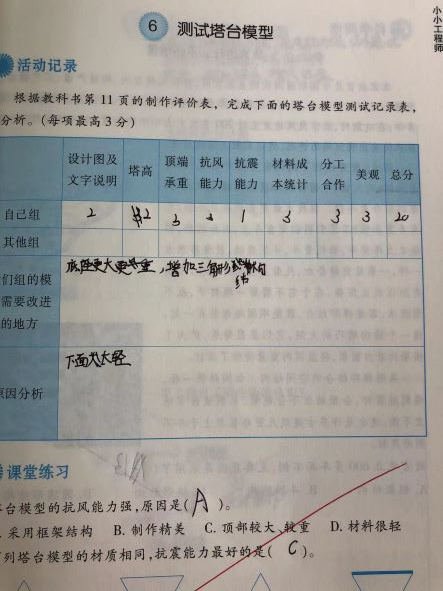 小小工程师
6 测试塔台模型
活动记录
根据教科书第 11 页的制作评价表，完成下面的塔台模型测试记录表，
分析。(每项最高 3 分)
设计图及文字说明 塔高 顶端承重 抗风能力 抗震能力 材料成本统计 分工合作 美观 总分
自己组 2 2 3 1 3 3 3 20
其他组
们组的模
需要改进
的地方
底座更大更重，增加三角形结构
原因分析
下面太轻
课堂练习
台模型的抗风能力强，原因是( A )。
采用框架结构 B. 制作精美 C. 顶部较大、较重 D. 材料很轻
列塔台模型的材质相同，抗震能力最好的是( C )。